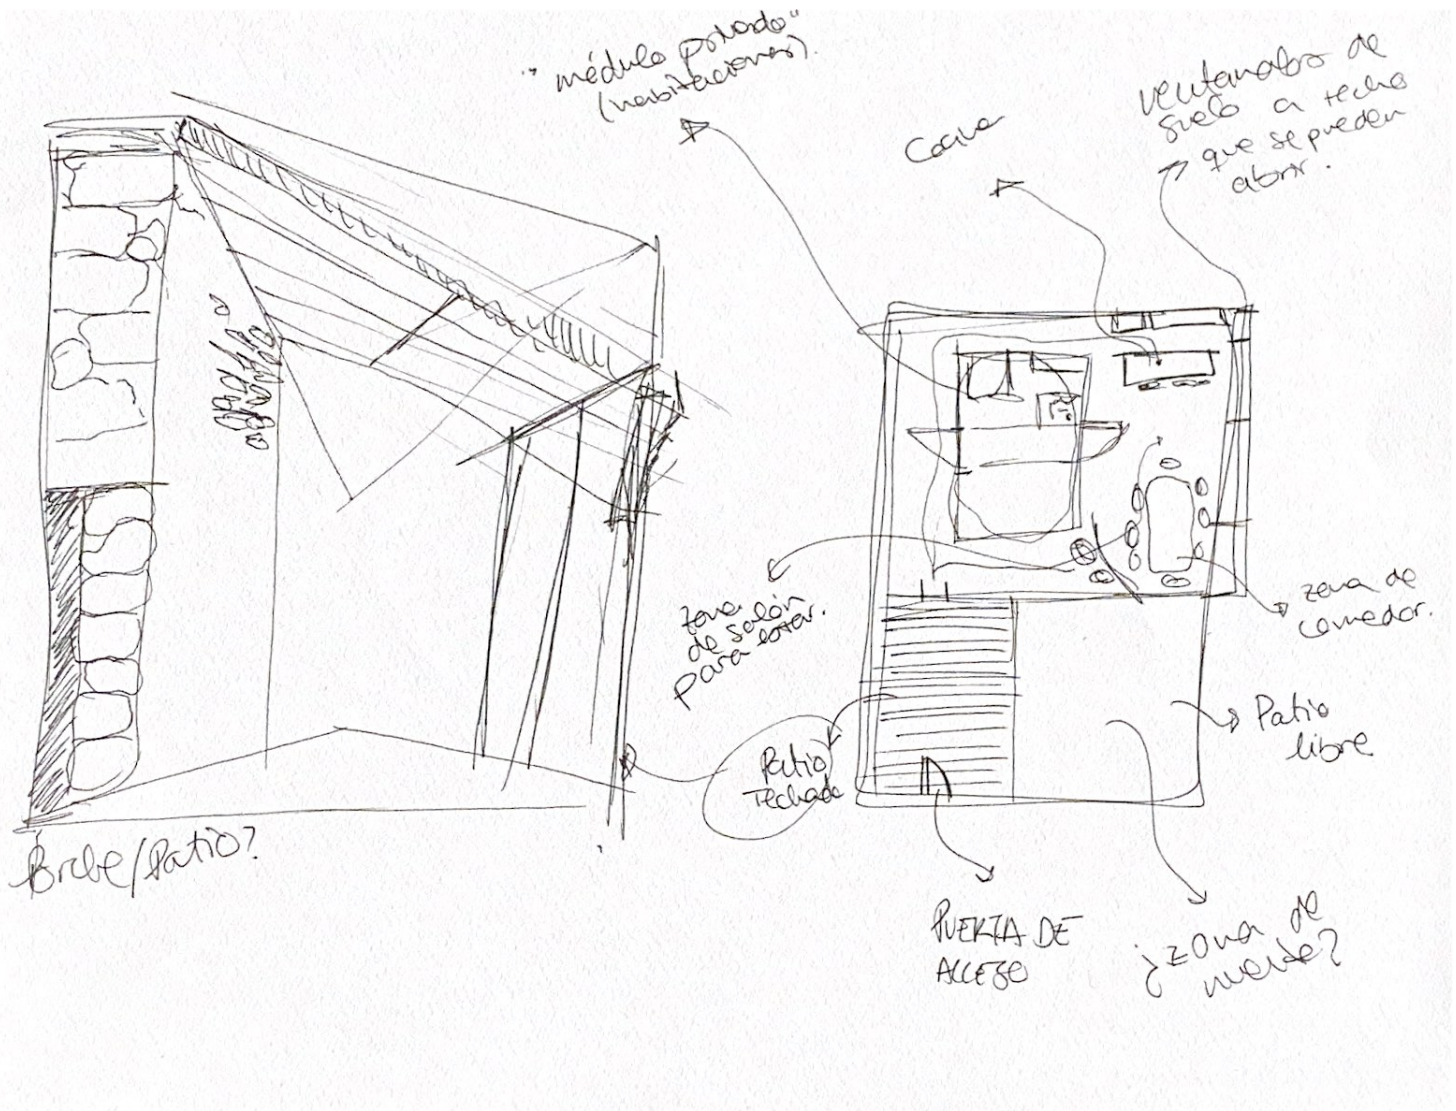 "módulo privado"
(habitaciones).
Cocina
ventanales de
suelo a techo
que se pueden
abrir.
zona
de salón
para estar.
zona de
comedor.
Patio
Techado
Patio
libre
PUERTA DE
ACCESO
¿zona de
Patio?